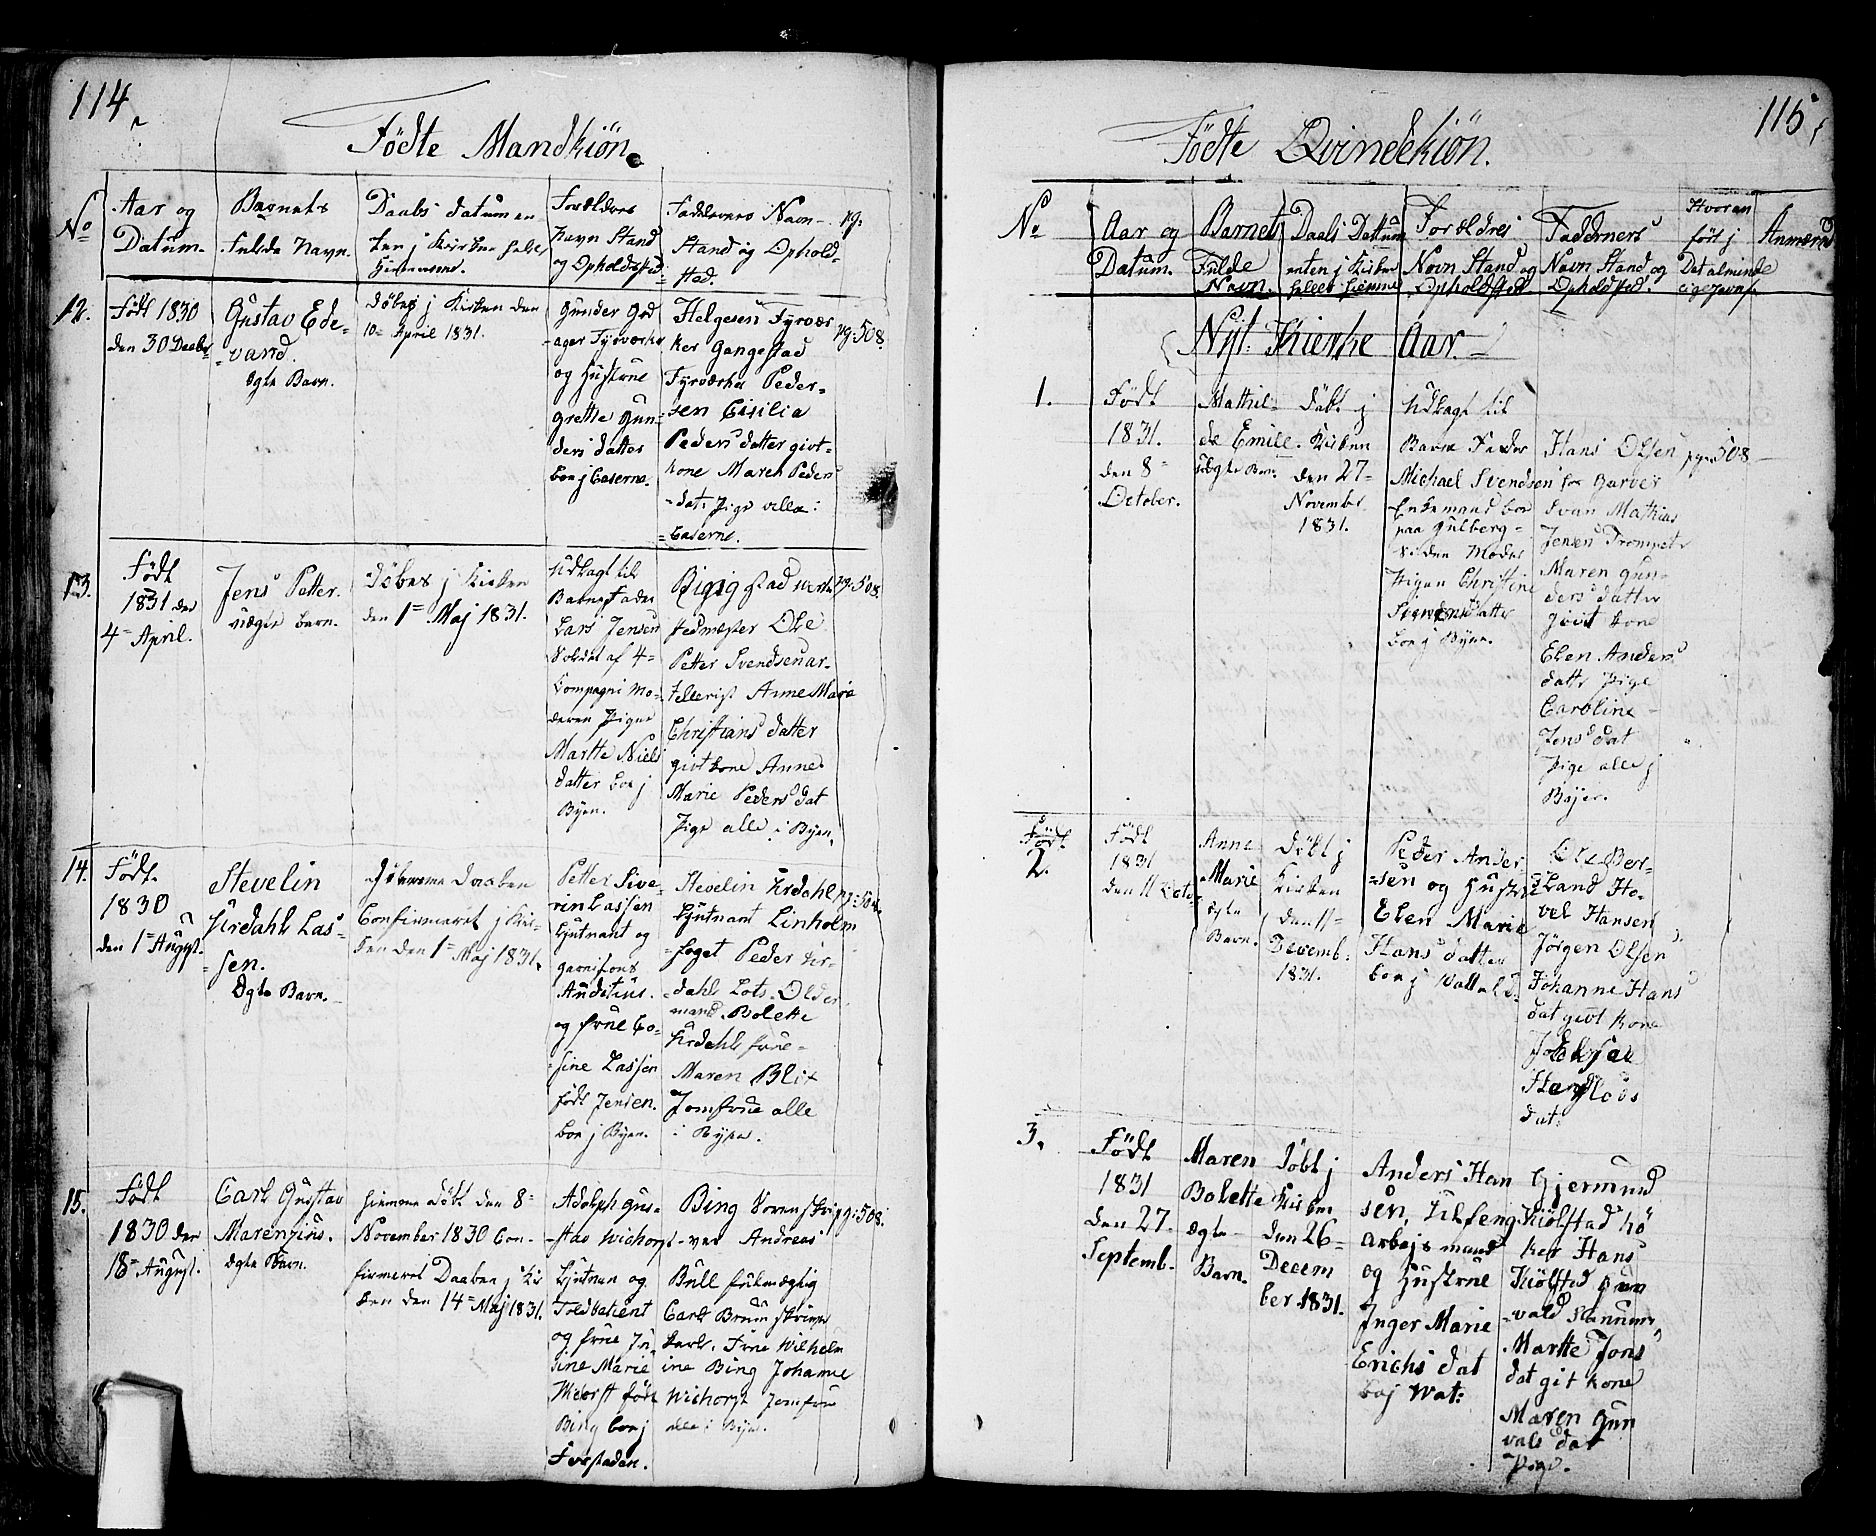 114
Fødte Mandkiøn
No
Aar og
Datum.
Barnets
fulde Navn.
Daabs datum en
ten j Kirken heler
hiemme.
Forældres
Navn Stand
og Opholdsted
Faddernes Navn
Stand og Ophold-
sted.
pg.
12.
Født 1830
den 30 Decbr
Gustav Ede-
vand.
Ægte Barn.
Døbes j Kirken den
10de April 1831.
Gunder God
ager Fyrverker
og Hustrue
Grethe Gun-
ders datter
boe j Caserne.
Helgesen Fyrvær
ker Gangestad
Fyrverker Peder-
sen Cisilia
Peders datter givt-
kone Maren Peders
dat: Pige alle i
Caserne.
pg: 508.
13.
Født
1831 den
4de April.
Jens Petter.
uægte barn.
Døbes j Kirken
den 1te Maj 1831.
Udlagt til
Barnefader
Lars Jensen
Soldat af 4de
Compagni Mo-
deren Pigen
Marthe Niels
datter boe j
Byen.
stad
Ole
Petter Svendsen ar-
tellerist Anne Maria
Christians datter
givt kone Anne
Marie Peders dat
Pige alle i Byen.
pg: 508.
14.
Født
1830
den 1te August.
Stevelin
Urdahl Las-
sen.
Ægte Barn.
Hjemme Daaben
Confirmeret j Kir-
ken den 1te Maj 1831.
Petter Sive-
rin Lassen
Ljutnant og
garnisons
Auditeur.
og frue Co-
sine Lassen
født Jensen.
boe j Byen.
Stevelin Urdahl
Ljutnant Linholm
foget Peder Ur-
dahl Lots Older
mand. Bolette
Urdahl frue
Maren Blix
Jomfrue alle
i Byen.
pg: 508.
15.
Født
1830 den
18de August.
Carl Gustav
Marenzius.
Ægte Barn.
hjemme døbt den 8de
November 1830 Con-
firmeret Daaben j Kir
ken den 14de Maj 1831.
Adolph Gus-
tav Wichorst
Ljutnan og
Toldbetient
og frue Ju-
sine Marie
Widorst født
Bing boe j
Forstaden.
Bing Sorenskri
ver Andreas
Bull fulmægtig
Carl Bruun skriver
karl. Frue Wilhelm
ine Bing Johanne
Wichorst Jomfrue
alle i Byen.
pg: 508.
115
Fødte Qvindekiøn.
No
Aar og
Datum.
Barnets
Fulde
Navn.
Daabs Dattum
enten j Kirken
heller hiemme
Forældres
Navn Stand og
Opholdsted.
Fadernes
Navn Stand og
Opholdsted.
Hvor an
ført j
Det alminde
lige Jevnf.
Anmærkn
Nyt Kierke Aar
1.
Født
1831.
den 8de
October.
Mathil-
de Emilie.
Uægte Barn.
Døbt j
Kirken
den 27de
November
1831.
Udlagt til
Barne Fader
Michael Svendsen
Enkemand boe
paa Gulberg-
siden Moder
Pigen Christine
Svends datter
boe j Byen.
Hans Olsen
for Barber
Ivan Mathias
Jensen Trompeter
Maren Gun-
ders datter
givt kone
Elen Anders
datter Pige
Caroline
Jens dat
Pige alle j
Byen.
pg: 508
Født
2.
Født
1831
den 11 Octob.
Anne
Marie
ægte
Barn.
Døbt j
Kirken
den 11te
Decemb:
1831.
Peder Ander
sen og Hustrue
Elen Marie
Hans datter
boe j
Ole Ber-
land Ho-
vel Hansen
Jörgen Olsen
Johanne Hans
dat givt kone
dat:
3.
Født
1831
den 27.
Septemb.
Maren
Bolette
ægte
Barn.
Døbt j
Kirken
den 26de
Decem
ber 1831.
Anders Han
sen,
arbejs mand
og Hustrue
Inger Marie
Erichs dat
boj Wat:
Gjermund
Kiølstad hø
ker Hans
Kiølstad Gun
vald
Marthe Jons
dat git kone
Maren Gun
vals dat
Pige.